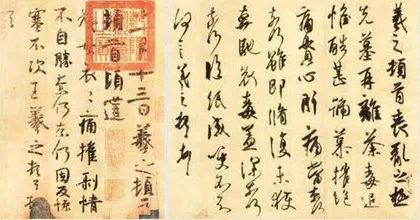 羲之頓首喪亂之極
先墓再離荼毒追
惟酷甚號慕摧絕
痛貫心肝痛當奈何
奈何雖即脩復未獲
奔馳哀毒益深奈何
奈何臨紙感哽不知
何言羲之頓首頓首
十一月十三日羲之頓首
頓首頃遘
姨母哀哀痛摧剝情
不自勝奈何奈何因反慘
塞不次王羲之頓首頓首